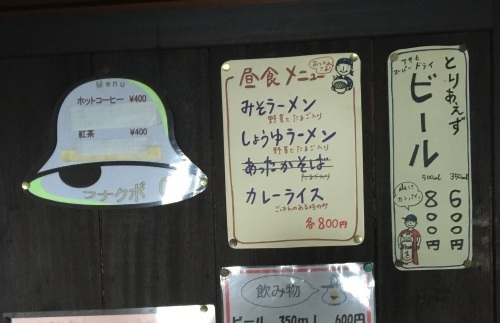 Menu
ホットコーヒー ¥400
紅茶 ¥400
フナクボ
昼食メニュー
みそラーメン
野菜とたまご入り
しょうゆラーメン
野菜とたまご入り
あったかそば
たまご入り
カレーライス
ごはんのある時のみ
各800円
とりあえず
アサヒ
スーパードライ
ビール
350ml 600円
500ml 800円
飲み物
ビール 350ml 600円